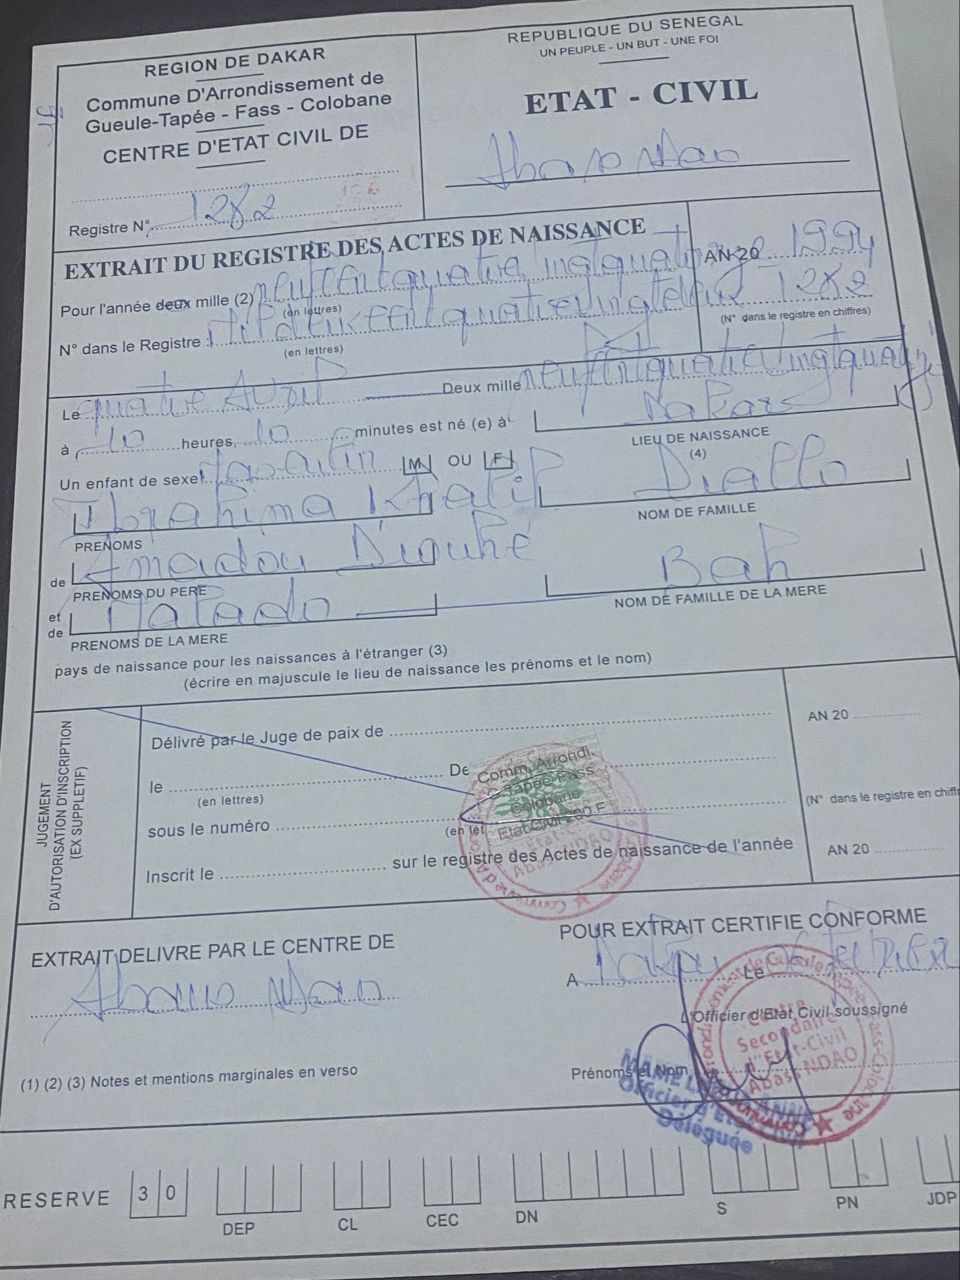 REGION DE DAKAR
Commune D'Arrondissement de
Gueule-Tapée - Fass - Colobane
CENTRE D'ETAT CIVIL DE
Registre N° 1282
REPUBLIQUE DU SENEGAL
UN PEUPLE - UN BUT - UNE FOI
ETAT - CIVIL
Abass Ndao
EXTRAIT DU REGISTRE DES ACTES DE NAISSANCE
Pour l'année deux mille (2) neufcentquatrevingtquatorze AN 20 1994
(en lettres)
N° dans le Registre : milledeuxcentquatrevingtdeux 1282
(en lettres)
(N° dans le registre en chiffres)
Le quatre Avril Deux mille neufcentquatrevingtquatorze
à 10 heures, 10 minutes est né (e) à Dakar
LIEU DE NAISSANCE
(4)
Un enfant de sexe Masculin M OU F
Ibrahima Khalil Diallo
PRENOMS
NOM DE FAMILLE
de Amadou Diouhé
PRENOMS DU PERE
et de Malado Bah
PRENOMS DE LA MERE
NOM DE FAMILLE DE LA MERE
pays de naissance pour les naissances à l'étranger (3)
(écrire en majuscule le lieu de naissance les prénoms et le nom)
JUGEMENT
D'AUTORISATION D'INSCRIPTION
(EX SUPPLETIF)
Délivré par le Juge de paix de
AN 20
le De
(en lettres)
sous le numéro
(en let
(N° dans le registre en chiffr
Inscrit le sur le registre des Actes de naissance de l'année
AN 20
Comm. Arrondi.
Fass
Colobane
Etat Civil 200 F
Etat-Civil
Abass NDAO
EXTRAIT DELIVRE PAR LE CENTRE DE
Abass Ndao
POUR EXTRAIT CERTIFIE CONFORME
A Dakar Le
L'Officier d'Etat Civil soussigné
Prénoms et Nom
Centre
Secondaire
d'Etat-Civil
Abass NDAO
MAME
Officier d'Etat
Déléguée
(1) (2) (3) Notes et mentions marginales en verso
RESERVE 3 0
DEP
CL
CEC
DN
S
PN
JDP